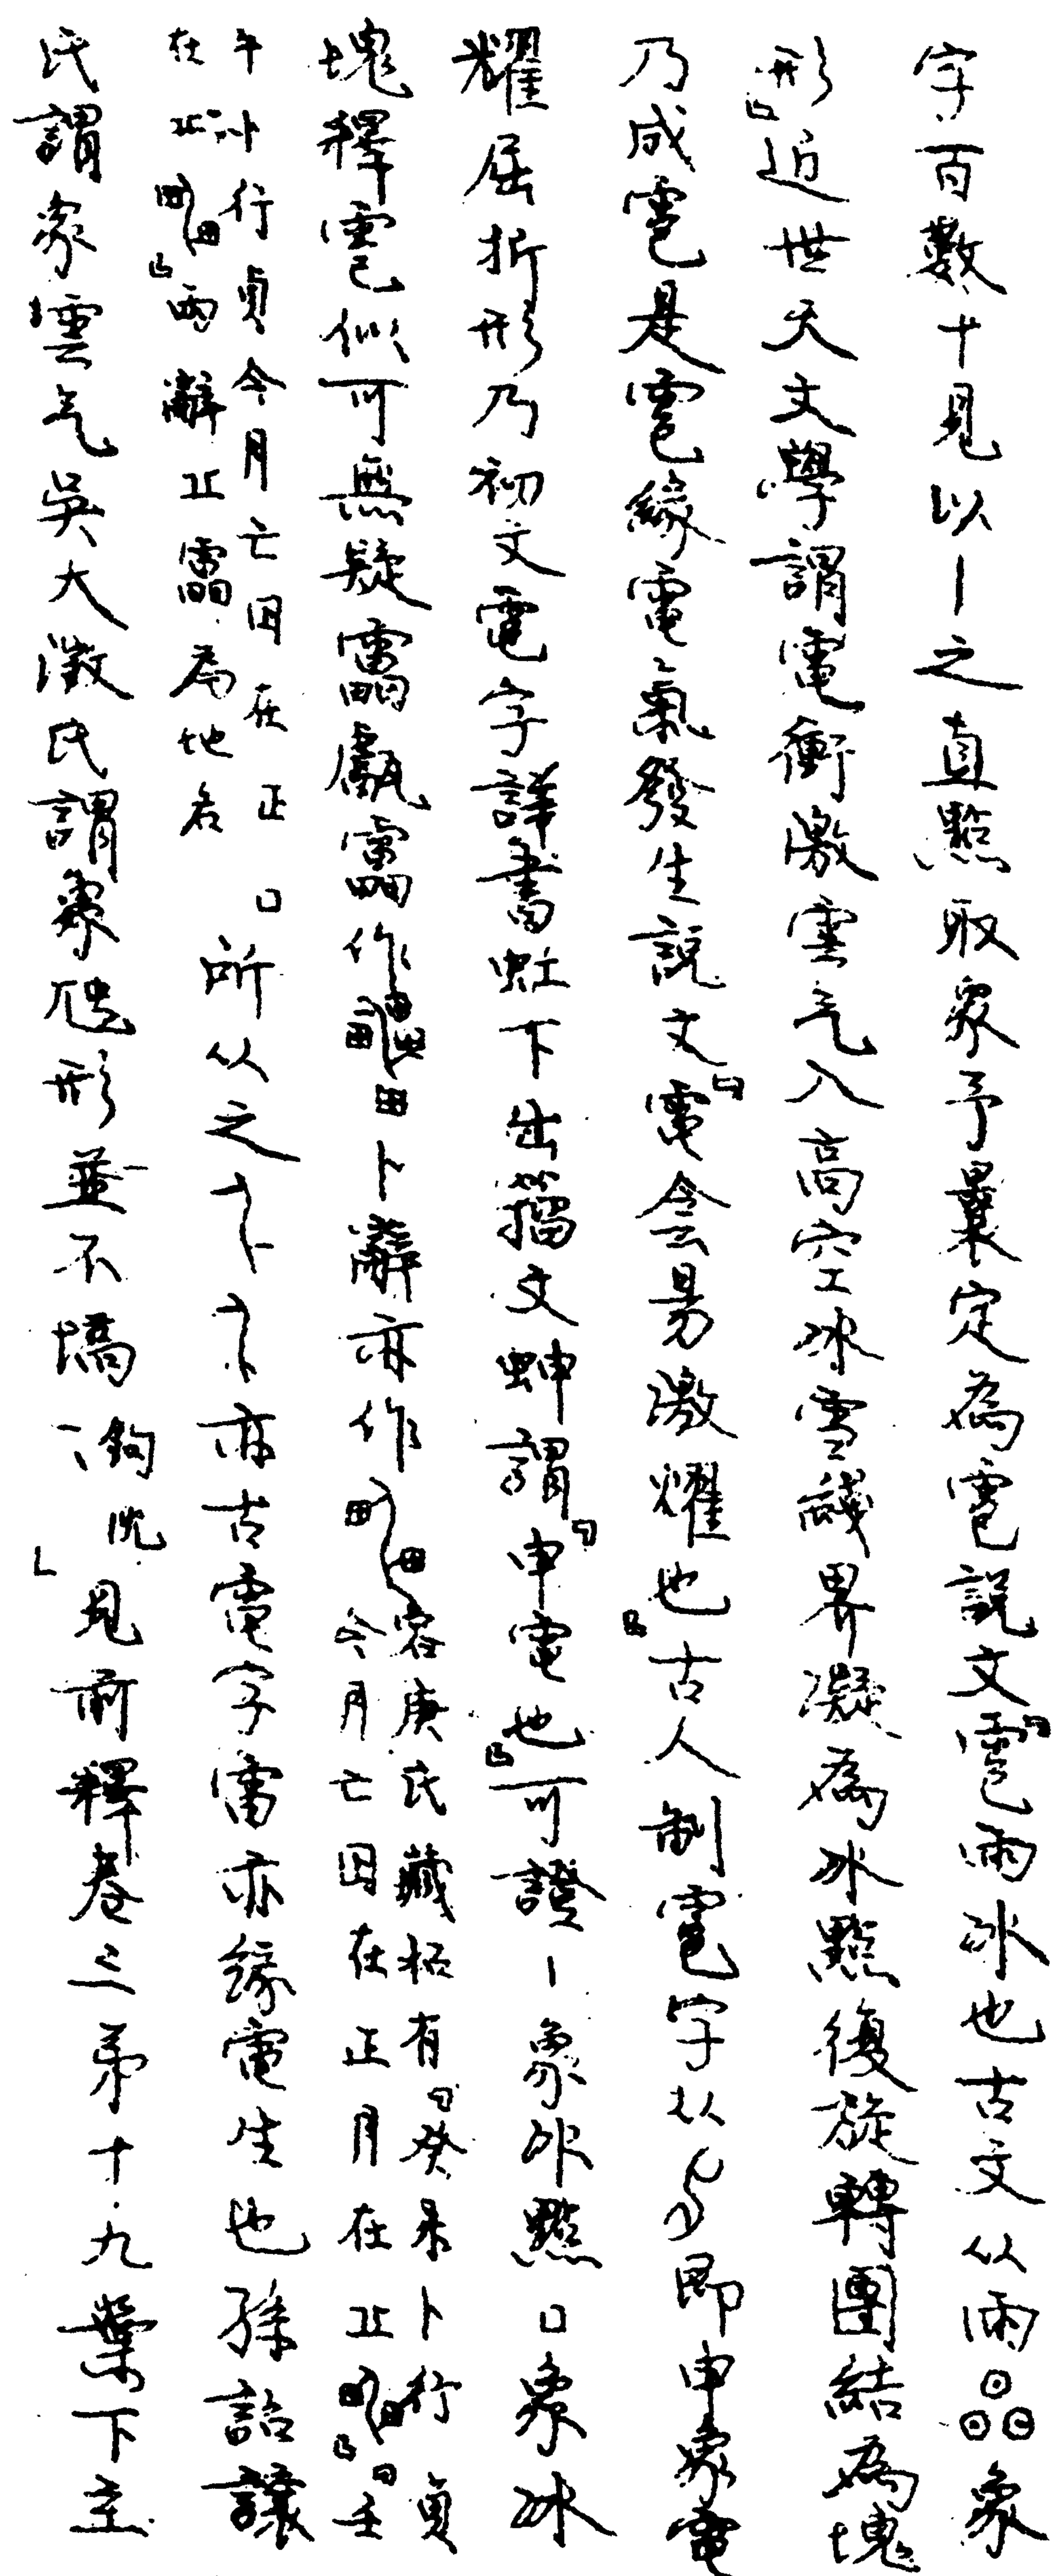 字百數十見以丨之直點取象予曩定為雹說文「雹雨冰也古文从雨象
形」近世天文學謂電衝激雲气入高空冰雪綫界凝為冰點復旋轉團結為塊
乃成雹是雹緣電氣發生說文「電侌昜激耀也」古人制雹字从即申象電
耀屈折形乃初文電字許書虹下出籀文蚺謂「申電也」可證丨象冰點口象冰
塊釋雹似可無疑靁甗靁作卜辭亦作
容庚氏藏柘有「癸未卜行貞
今月亡囚在正月在」「壬
午卜行貞今月亡囚在正口
在」兩辭靁為地名
所从之亦古電字雷亦緣電生也孫詒讓
氏謂象雲气吳大澂氏謂象虺形並不塙
鉤沈
見前釋卷三弟十九葉下主